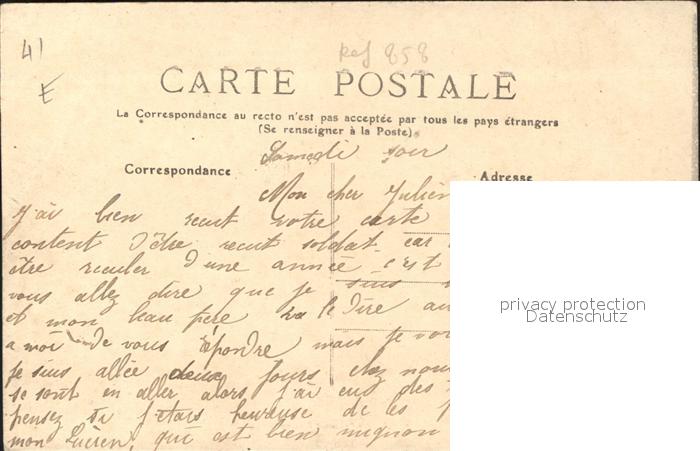 41
Ref 858
E
CARTE POSTALE
La Correspondance au recto n'est pas acceptée par tous les pays étrangers
(Se renseigner à la Poste).
Samedi soir
Correspondance
Adresse
Mon cher Julien
J'ai bien recut votre carte
content d'être recut soldat car
être reculer d'une année c'est
vous allez dire que je suis
et mon beau père va le dire au
a moi de vous répondre mais je
je suis allée deux jours chez
se sont en aller alors j'ai eus des
pensez si j'étais heureuse de les
mon Lucien, qui est bien mignon
privacy protection
Datenschutz